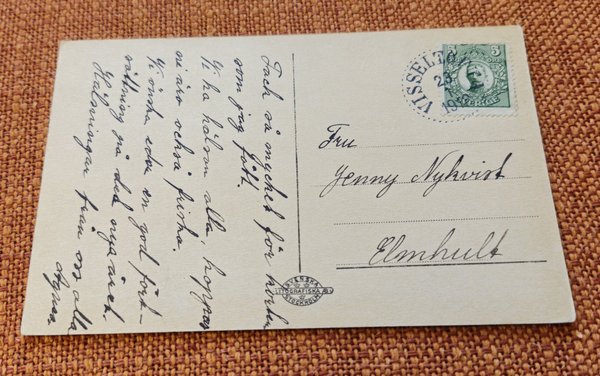 Tack så mycket för kortet
som jag fått.
Vi ha hälsan alla, hoppas
ni äro också friska.
Vi önska eder en god fort-
sättning på det nya året.
Hälsningar från oss alla
Agnes
Fru
Jenny Nykvist
Elmhult
VISSELTO
5
SVENSKA
LITOGRAFISKA A.B.
STOCKHOLM